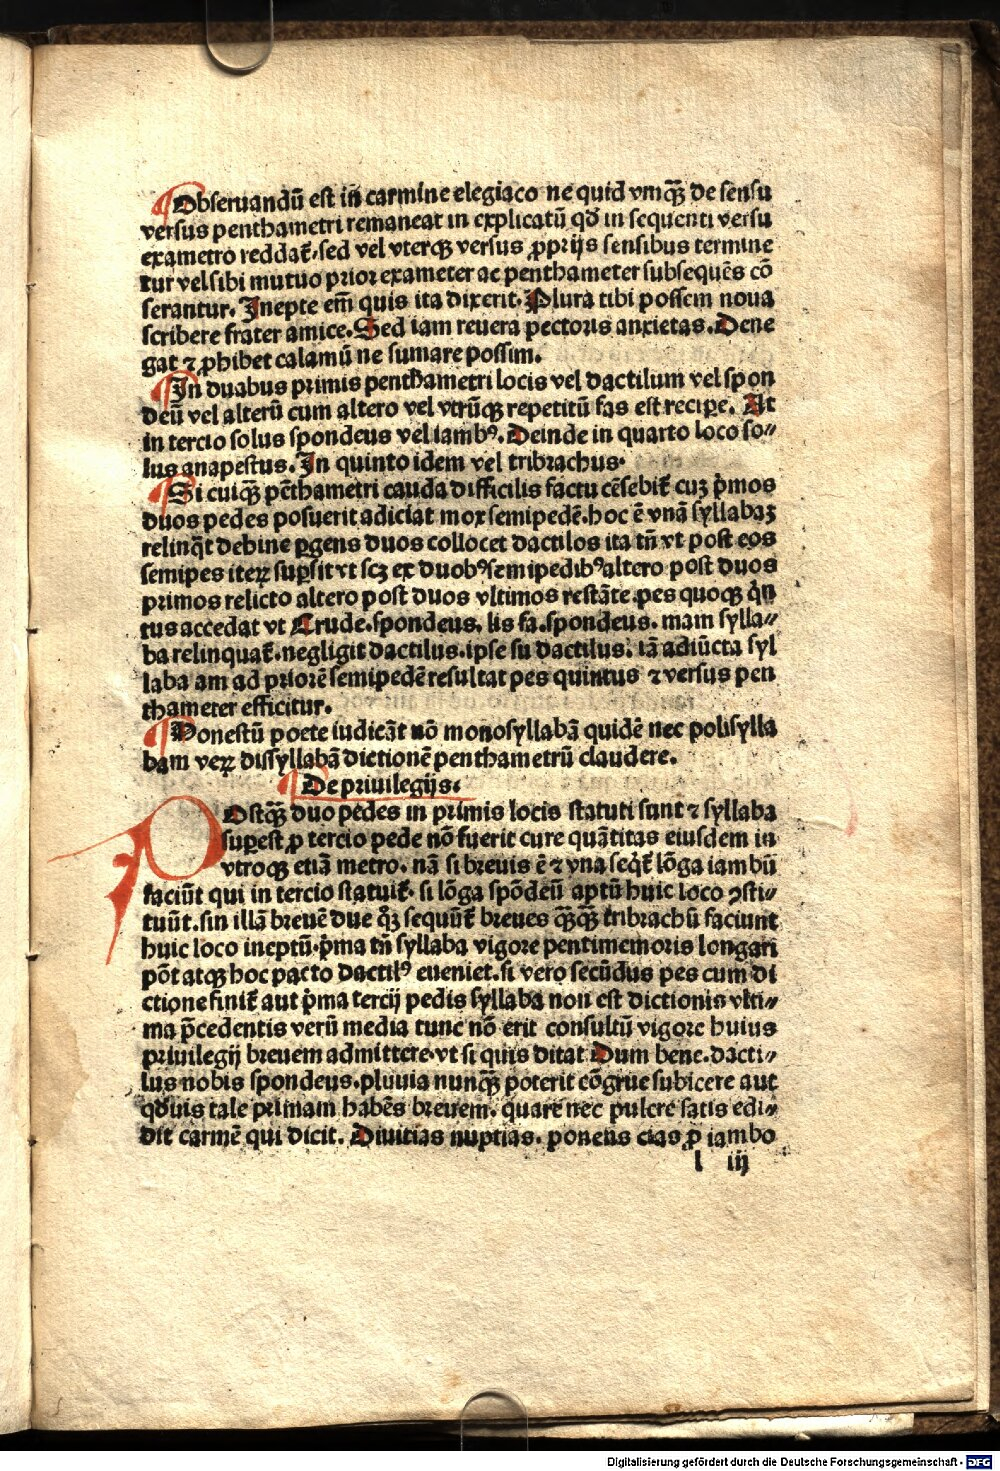 Obseruandū est in̄ carmine elegiaco ne quid vmqꝫ̄ de sensu
versus penthametri remaneat in explicatū qđ in sequenti versu
exametro reddat᷑. sed vel vterqꝫ versus ꝓprijs sensibus termine
tur vel sibi mutuo prior exameter ac penthameter subsequēs cō
serantur. Inepte em̄ quis ita dixerit. Plura tibi possem noua
scribere frater amice. Sed iam reuera pectoris anxietas. Dene
gat ⁊ ꝓhibet calamū ne sumare possim.
In duabus primis penthametri locis vel dactilum vel spon
deū vel alterū cum altero vel vtrūqꝫ repetitū fas est reciꝑe. At
in tercio solus spondeus vel iambꝰ. Deinde in quarto loco so⸗
lus anapestus. In quinto idem vel tribrachus.
Si cuiqꝫ̄ pēthametri cauda difficilis factu cēsebit᷑ cuꝫ p̄mos
duos pedes posuerit adiciat mox semipedē. hoc ē vnā syllabaꝫ
relinq̄t debine ꝑgens duos collocet dactilos ita tn̄ vt post eos
semipes iteꝝ suꝑsit vt scꝫ ex duobꝰ semipedibꝰ altero post duos
primos relicto altero post duos vltimos restāte pes quoqꝫ q̇n
tus accedat vt Crude. spondeus. lis fa. spondeus. mam sylla⸗
ba relinquat᷑. negligit dactilus. ipse su dactilus. iā adiūcta syl
laba am ad priorē semipedē resultat pes quintus ⁊ versus pen
thameter efficitur.
Honestū poete iudicāt nō monosyllabā quidē nec polisylla
bam veꝝ dissyllabā dictionē penthametrū claudere.
De priuilegijs.
POstqꝫ̄ duo pedes in primis locis statuti sunt ⁊ syllaba
suꝑest ꝓ tercio pede nō fuerit cure quātitas eiusdem in
vtroqꝫ etiā metro. nā si breuis ē ⁊ vna seq̄t᷑ lōga iambū
faciūt qui in tercio statuit᷑. si lōga spōdeū aptū huic loco ꝯsti⸗
tuūt. sin illā breuē due qꝫ̊ sequūt᷑ breues qꝫ̄qꝫ̄ tribrachū faciunt
huic loco ineptū. p̄ma tn̄ syllaba vigore pentimemoris longari
pōt atqꝫ hoc pacto dactilꝰ eueniet. si vero secūdus pes cum di
ctione finit᷑ aut p̄ma tercij pedis syllaba non est dictionis vlti⸗
ma p̄cedentis verū media tunc nō erit consultū vigore huius
priuilegij breuem admittere. vt si quis ditat Dum bene. dacti⸗
lus nobis spondeus. pluuia nunqꝫ̄ poterit cōgrue subicere aut
qđuis tale primam habēs breuem. quare nec pulcre satis edi⸗
dit carmē qui dicit. Diuitias nuptias. ponens cias ꝓ iambo
l iij
Digitalisierung gefördert durch die Deutsche Forschungsgemeinschaft - DFG